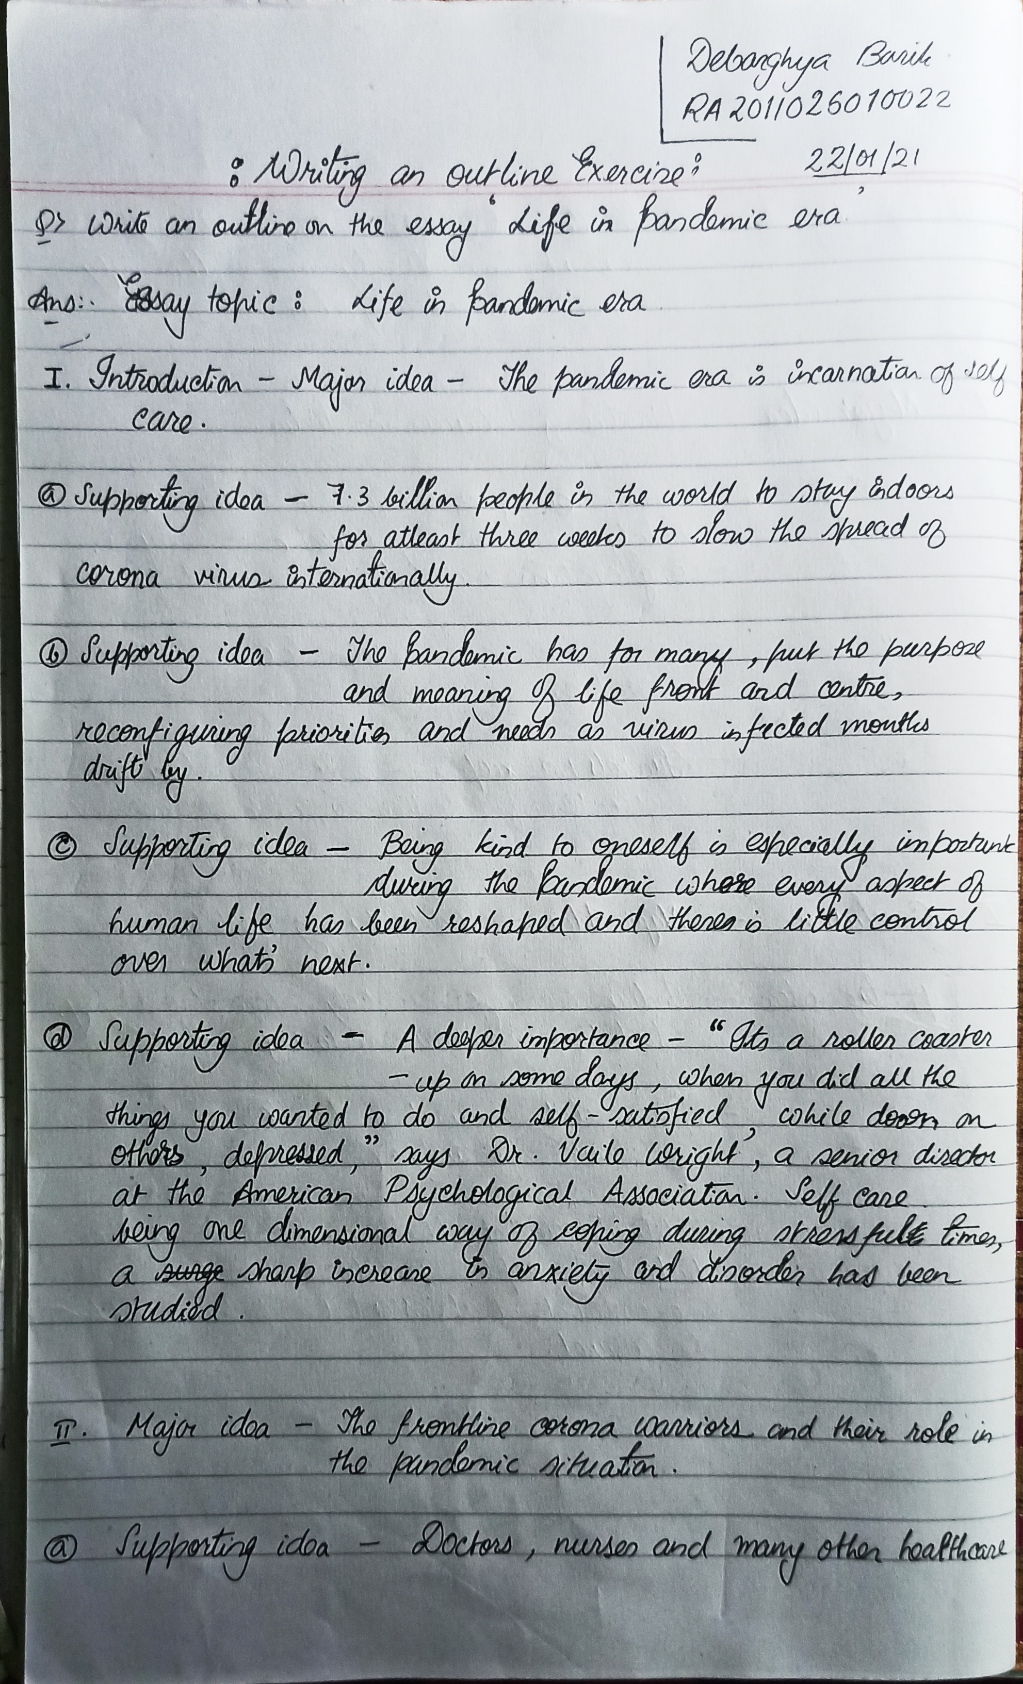 Debarghya Barik
RA2011026010022
22/01/21
: Writing an outline Exercise :
Q> Write an outline on the essay 'Life in pandemic era'
Ans:. Essay topic : Life in pandemic era
I. Introduction - Major idea - The pandemic era is incarnation of self
care.
(a) Supporting idea - 7.3 billion people in the world to stay indoors
for atleast three weeks to slow the spread of
corona virus internationally.
(b) Supporting idea - The pandemic has for many, put the purpose
and meaning of life front and centre,
reconfiguring priorities and needs as virus infected months
drift by.
(c) Supporting idea - Being kind to oneself is especially important
during the pandemic where every aspect of
human life has been reshaped and theres is little control
over what's next.
(d) Supporting idea - A deeper importance - "Its a roller coaster
- up on some days, when you did all the
things you wanted to do and self-satisfied, while down on
others, depressed," says Dr. Vaile Wright, a senior director
at the American Psychological Association. Self care
being one dimensional way of coping during stressfull times,
a surge sharp increase in anxiety and disorder has been
studied.
II. Major idea - The frontline corona warriors and their role in
the pandemic situation.
(a) Supporting idea - Doctors, nurses and many other healthcare